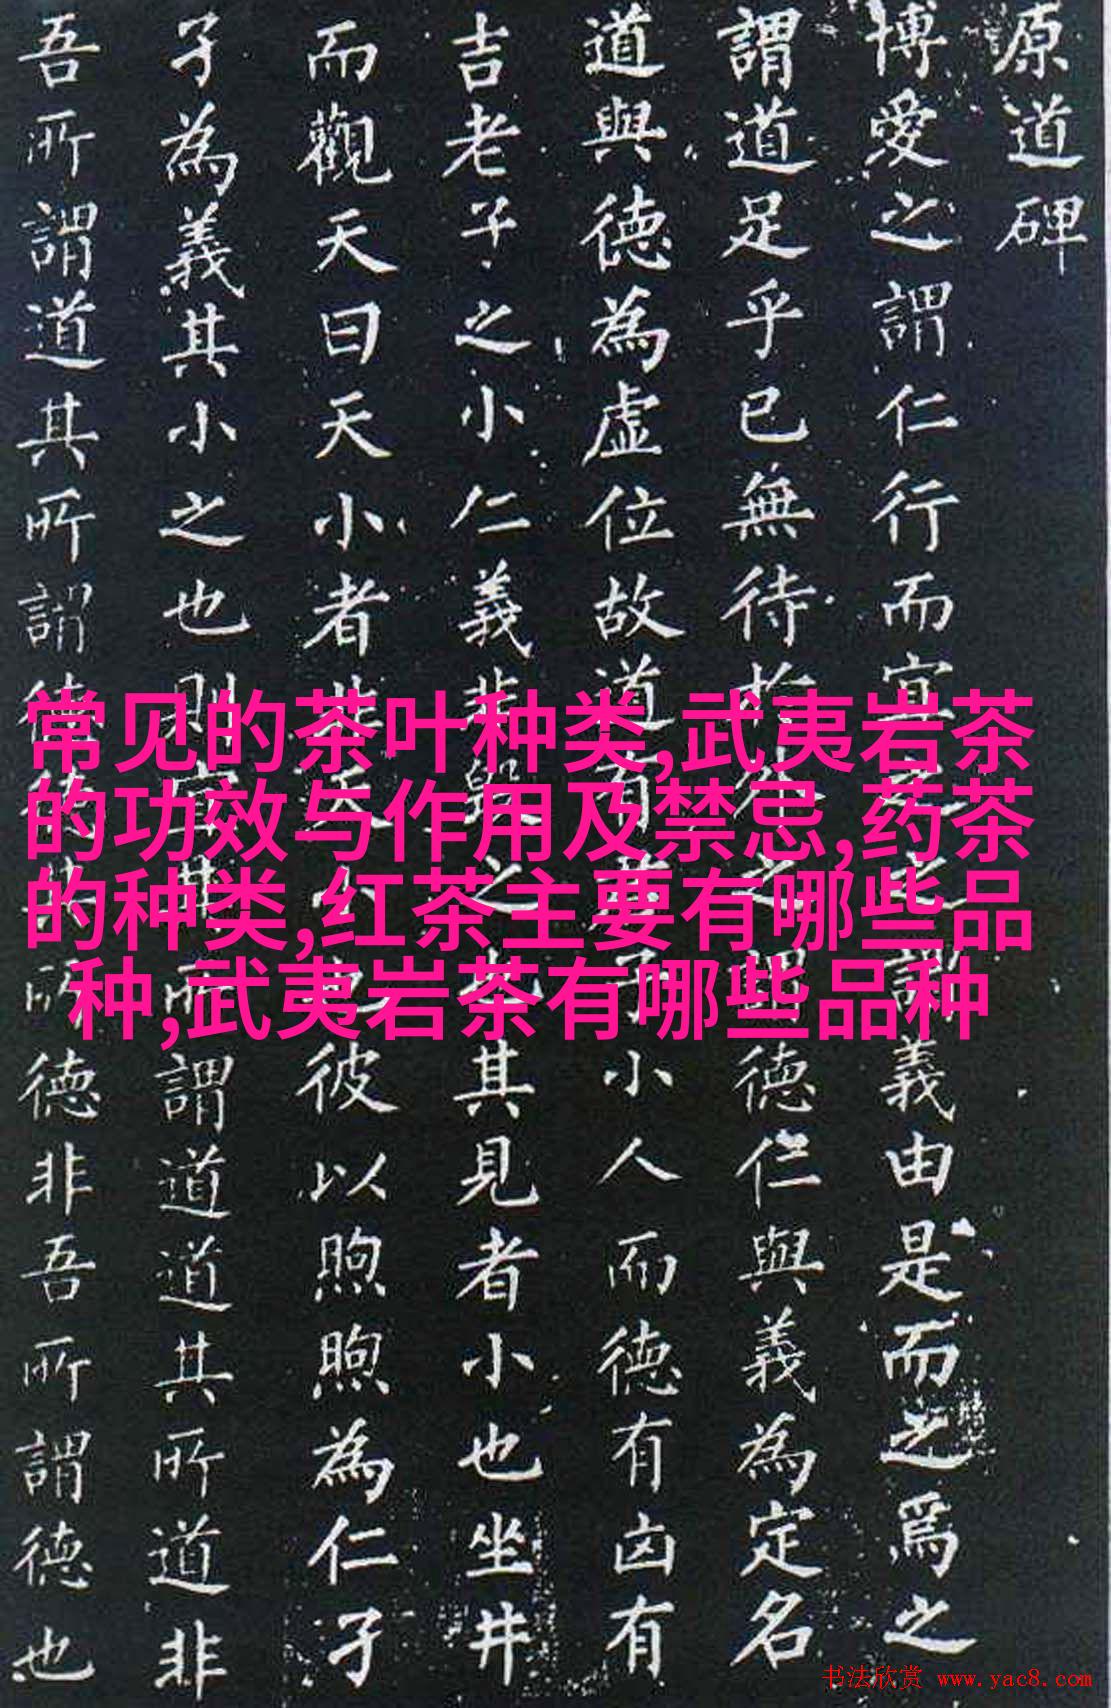 原道碑
博愛之謂仁行而宜之之謂義由是而之焉之
謂道足乎已無待於外之謂德仁與義為定名
道與德為虛位故道有君子小人而德有凶有
吉老子之小仁義非毀之也其見者小也坐井
而觀天曰天小者非天小也彼以煦煦為仁孑
孑為義其小之也則宜其所謂道道其所道非
吾所謂道其所謂德德其所德非吾所謂德也
常见的茶叶种类,武夷岩茶
的功效与作用及禁忌,药茶
的种类,红茶主要有哪些品
种,武夷岩茶有哪些品种
书法欣赏 www.yac8.com